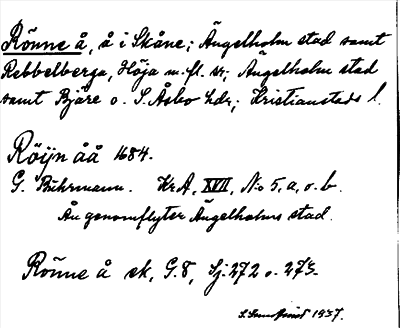 Rönne å, å i Skåne; Ängelholm stad samt
Rebbelberga, Höja m. fl. snr; Ängelholm stad
samt Bjäre o. S. Åsbo hdr; Kristianstads l.
Röÿn åå 1684.
G. Buhrmann. Kr A, XVII, No 5, a, o. b.
Ån genomflyter Ängelholms stad.
Rönne å ek, G. 8, Sj. 272 o. 273.
1937.